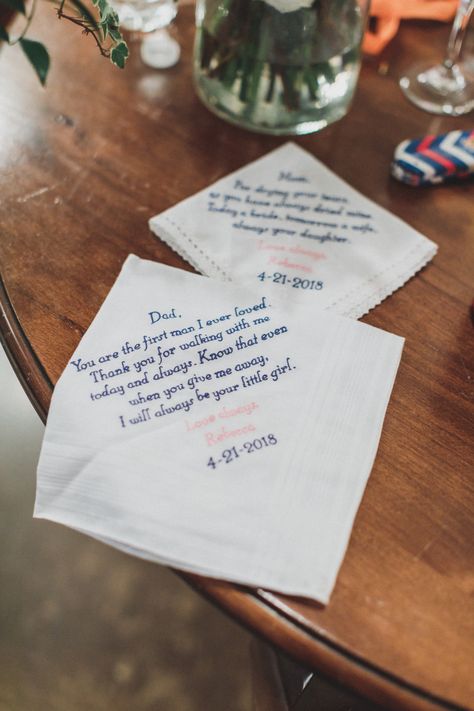 Mom,
For drying your tears,
as you have always dried mine.
Today a bride, tomorrow a wife,
always your daughter.
Love always,
Rebecca
4-21-2018
Dad,
You are the first man I ever loved.
Thank you for walking with me
today and always. Know that even
when you give me away,
I will always be your little girl.
Love always
Rebecca
4-21-2018